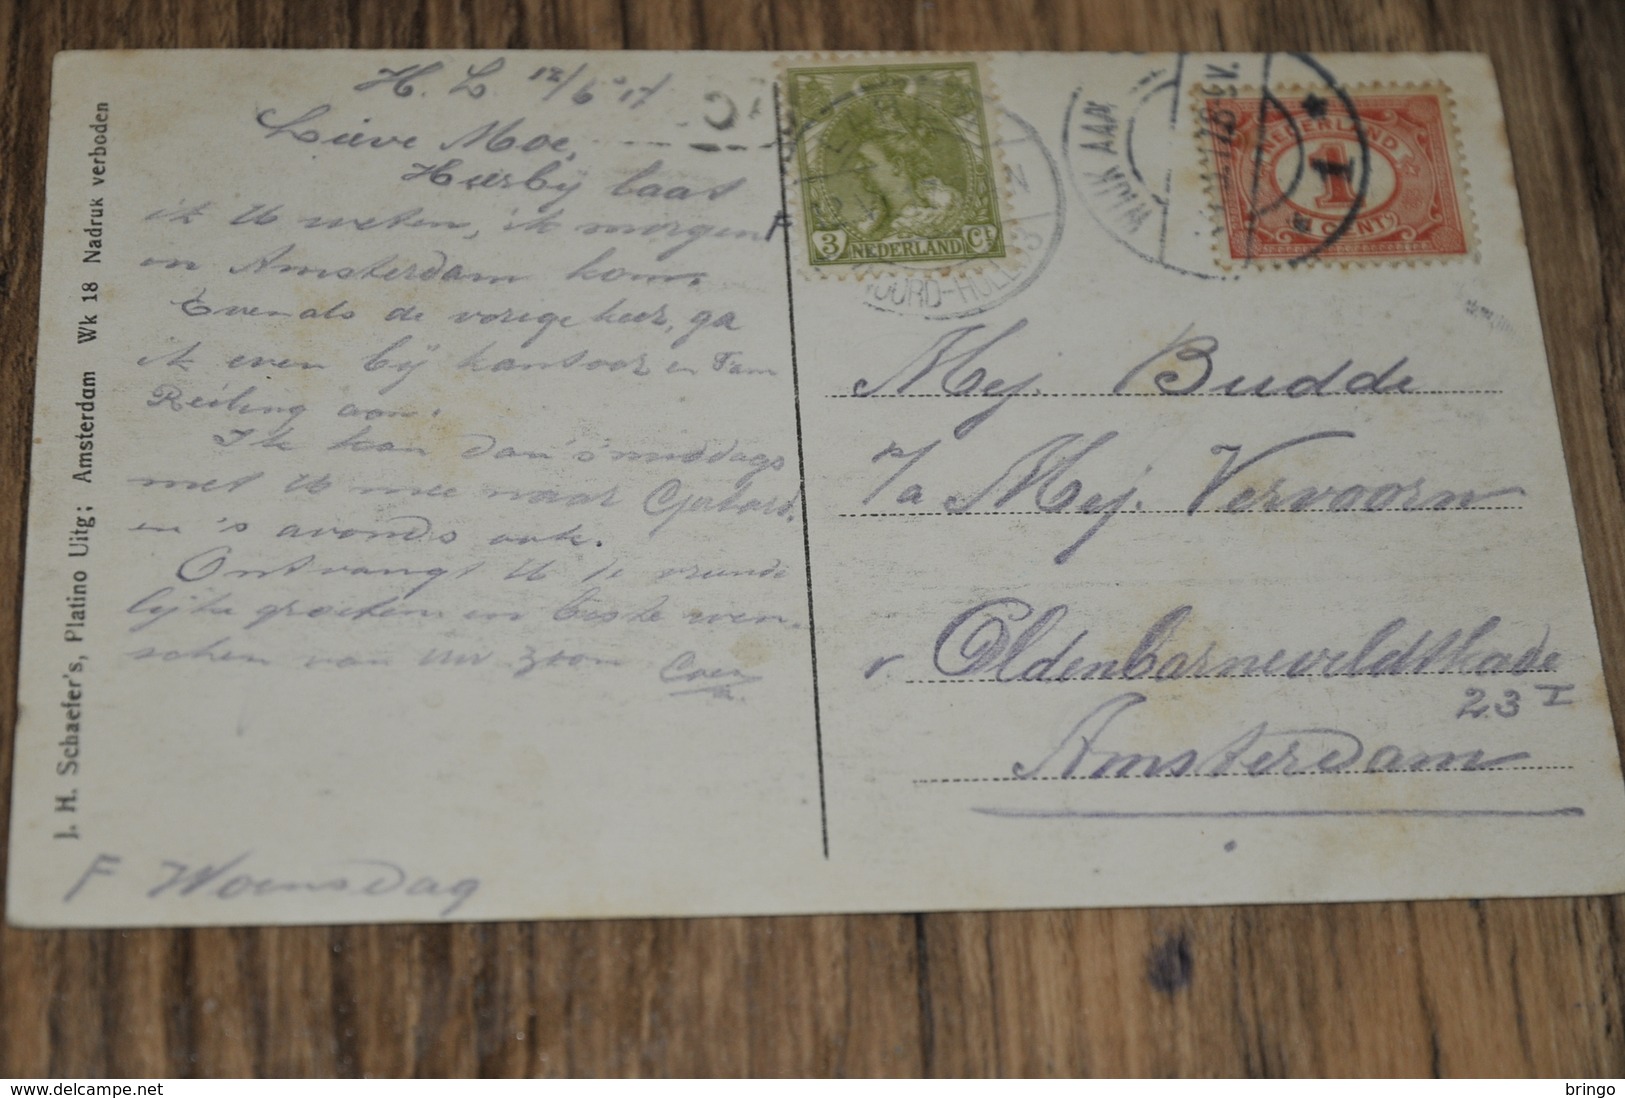 H. L. 12/6 '17
Lieve Moe,
Hierbij laat
ik U weten, ik morgen F
in Amsterdam kom.
Evenals de vorige keer, ga
ik even bij kantoor en Fam
Reiling aan.
Ik kan dan 's middags
met U mee naar
en 's avonds ook.
Ontvangt U de vriende
lijke groeten en beste wen-
schen van Uw zoon
F Woensdag
J. H. Schaefer's, Platino Uitg; Amsterdam Wk 18 Nadruk verboden
3 Ct
NEDERLAND
NOORD-HOLL
WIJK AAN
NEDERLAND
1
1 CENT
Mej. Budde
p/a Mej. Vervoorn
v. Oldenbarneveldtkade
23 I
Amsterdam
bringo
www.delcampe.net